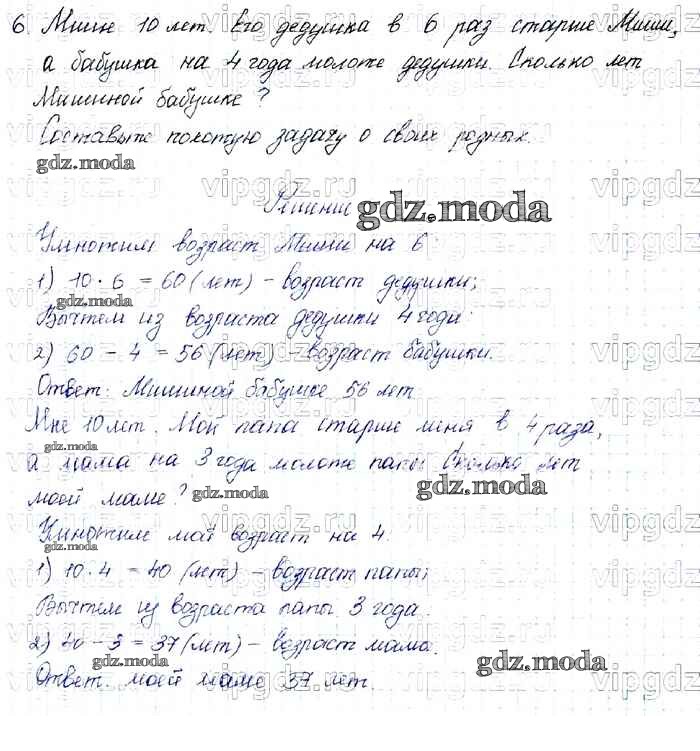 6. Мише 10 лет. Его дедушка в 6 раз старше Миши,
а бабушка на 4 года моложе дедушки. Сколько лет
Мишиной бабушке?
Составьте похожую задачу о своих родных.
gdz.moda
Решение gdz.moda
Умножим возраст Миши на 6
1) 10 · 6 = 60 (лет) – возраст дедушки;
gdz.moda
Вычтем из возраста дедушки 4 года:
2) 60 – 4 = 56 (лет) – возраст бабушки.
Ответ: Мишиной бабушке 56 лет
Мне 10 лет. Мой папа старше меня в 4 раза,
gdz.moda
а мама на 3 года моложе папы. Сколько лет
моей маме? gdz.moda gdz.moda
Умножим мой возраст на 4.
gdz.moda
1) 10 · 4 = 40 (лет) – возраст папы;
Вычтем из возраста папы 3 года.
2) 40 – 3 = 37 (лет) – возраст мама.
gdz.moda gdz.moda
Ответ: моей маме 37 лет.
vipgdz.ru